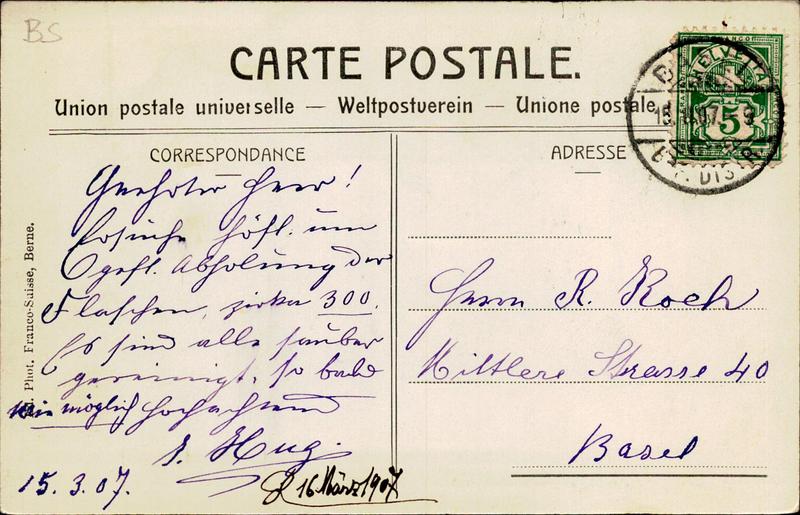 BS
CARTE POSTALE.
Union postale universelle — Weltpostverein — Unione postale
HELVETIA
FRANCO
5
15. 07. 9
DISTR.
CORRESPONDANCE
ADRESSE
Geehrter Herr!
Ersuche höfl. um
gefl. Abholung der
Flaschen, zirka 300.
Es sind alle sauber
gereinigt, so bald
wie möglich Hochachtend
J. Hug.
15. 3. 07.
16 März 1907
Herrn R. Koch
Mittlere Strasse 40
Basel
Phot. Franco-Suisse, Berne.